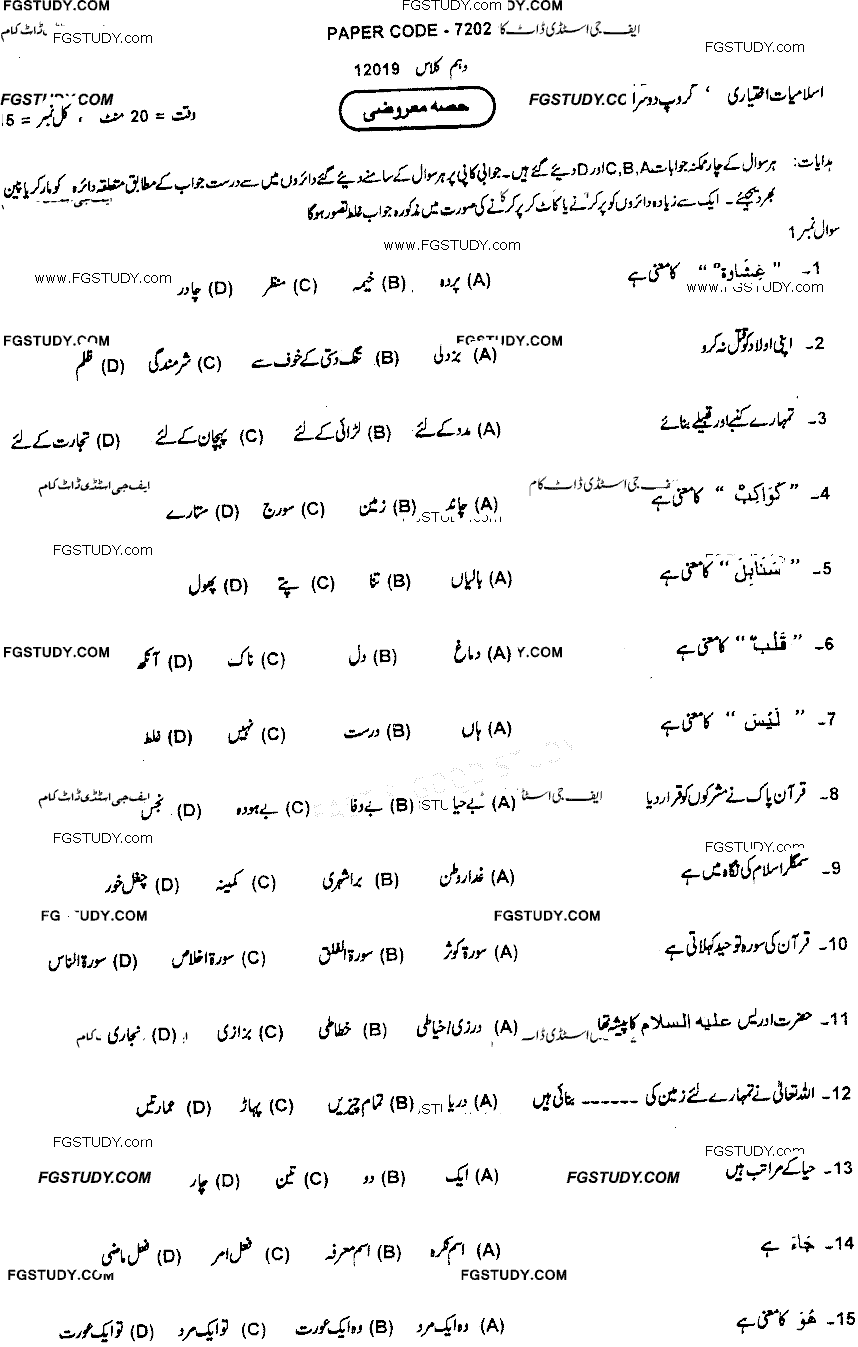 FGSTUDY.COM FGSTUDY.COM DY.COM
FGSTUDY.com PAPER CODE - 7202 ایف جی اسٹڈی ڈاٹ کا
FGSTUDY.com
دہم کلاس 12019
اسلامیات اختیاری ، گروپ دوسرا FGSTUDY.CO حصہ معروضی وقت = 20 منٹ ، کل نمبر = 15
FGSTUDY.COM
ہدایات: ہر سوال کے چار ممکنہ جوابات C,B,A اور D دیئے گئے ہیں۔ جوابی کاپی پر ہر سوال کے سامنے دیئے گئے دائروں میں سے درست جواب کے مطابق متعلقہ دائرہ کو مارکر یا پین
بھر دیجئے۔ ایک سے زیادہ دائروں کو پر کرنے یا کاٹ کر پر کرنے کی صورت میں مذکورہ جواب غلط تصور ہوگا
سوال نمبر 1
www.FGSTUDY.com
1۔ ” غِشَاوَة “ کا معنی ہے (A) پردہ (B) خیمہ (C) منظر (D) چادر
www.FGSTUDY.com www.FGSTUDY.com
FGSTUDY.COM FGSTUDY.COM
2۔ اپنی اولاد کو قتل نہ کرو (A) بزدلی (B) تنگ دستی کے خوف سے (C) شرمندگی (D) ظلم
3۔ تمہارے کنبے اور قبیلے بنائے (A) مدد کے لئے (B) لڑائی کے لئے (C) پہچان کے لئے (D) تجارت کے لئے
ف جی اسٹڈی ڈاٹ کام ایف جی اسٹڈی ڈاٹ کام
4۔ ” كَوَاكِبْ “ کا معنی ہے (A) چاند (B) زمین (C) سورج (D) ستارے
FGSTUDY.com
5۔ ” سَنَابِلَ “ کا معنی ہے (A) بالیاں (B) تنا (C) پتے (D) پھول
6۔ ” قَلْبٌ “ کا معنی ہے (A) دماغ (B) دل (C) ناک (D) آنکھ
FGSTUDY.COM Y.COM
7۔ ” لَيْسَ “ کا معنی ہے (A) ہاں (B) درست (C) نہیں (D) غلط
8۔ قرآن پاک نے مشرکوں کو قرار دیا (A) بے حیا (B) بے وفا (C) بے ہودہ (D) نجس
ایف جی اسٹا ایف جی اسٹڈی ڈاٹ کام
FGSTUDY.com FGSTUDY.com
9۔ سمگلر اسلام کی نگاہ میں ہے (A) غدار وطن (B) برا شہری (C) کمینہ (D) چغل خور
FG TUDY.COM FGSTUDY.COM
10۔ قرآن کی سورہ توحید کہلاتی ہے (A) سورۃ کوثر (B) سورۃ الفلق (C) سورۃ اخلاص (D) سورۃ الناس
11۔ حضرت ادریس علیہ السلام کا پیشہ تھا (A) درزی/خیاطی (B) خطاطی (C) بزازی (D) نجاری
12۔ اللہ تعالیٰ نے تمہارے لئے زمین کی ------ بنائی ہیں (A) دریا (B) تمام چیزیں (C) پہاڑ (D) عمارتیں
FGSTUDY.com FGSTUDY.com
13۔ حیا کے مراتب ہیں (A) ایک (B) دو (C) تین (D) چار
FGSTUDY.COM FGSTUDY.COM
14۔ جَاءَ ہے (A) اسم نکرہ (B) اسم معرفہ (C) فعل امر (D) فعل ماضی
FGSTUDY.COM FGSTUDY.COM
15۔ هُوَ کا معنی ہے (A) وہ ایک مرد (B) وہ ایک عورت (C) تو ایک مرد (D) تو ایک عورت